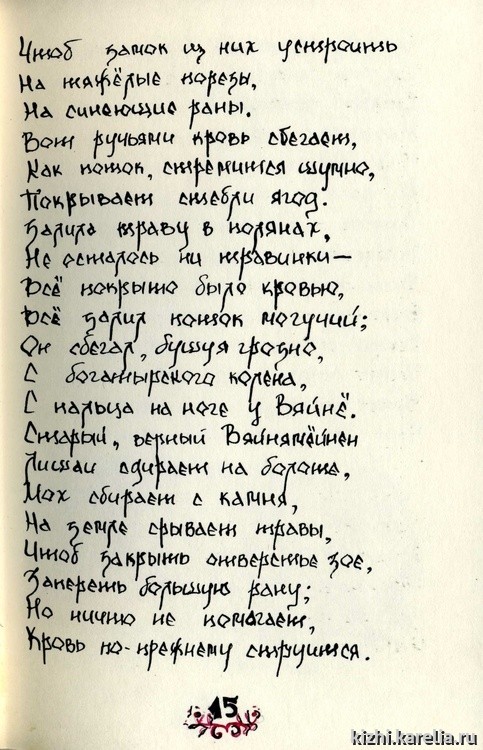 Чтоб замок из них устроить
На тяжёлые порезы,
На синеющие раны.
Вот ручьями кровь сбегает,
Как поток, стремится шумно,
Покрывает стебли ягод.
Залила траву в полянах,
Не осталось ни травинки—
Всё покрыто было кровью,
Всё залил поток могучий;
Он сбегал, бушуя грозно,
С богатырского колена,
С пальца на ноге у Вяйнё.
Старый, верный Вяйнямёйнен
Лишаи сдирает на болоте,
Мох сбирает с камня,
На земле срывает травы,
Чтоб закрыть отверстье злое,
Запереть большую рану;
Но ничто не помогает,
Кровь по-прежнему струится.
15
kizhi.karelia.ru